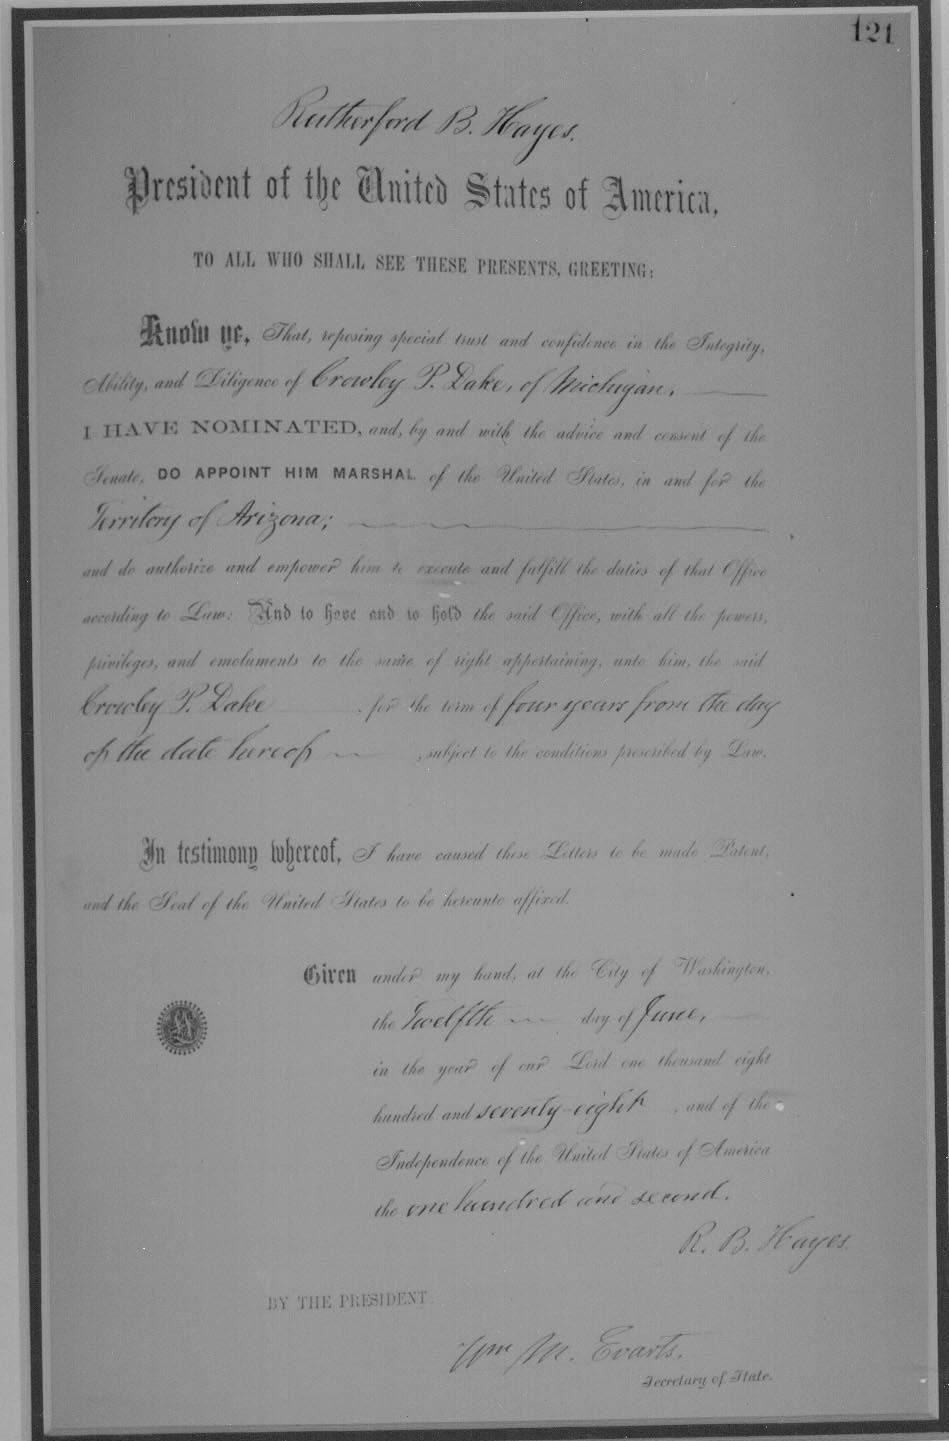 121
Rutherford B. Hayes.
President of the United States of America,
TO ALL WHO SHALL SEE THESE PRESENTS, GREETING:
Know ye, That, reposing special trust and confidence in the Integrity,
Ability, and Diligence of Crowley P. Dake, of Michigan,
I HAVE NOMINATED, and, by and with the advice and consent of the
Senate, DO APPOINT HIM MARSHAL of the United States, in and for the
Territory of Arizona;
and do authorize and empower him to execute and fulfill the duties of that Office
according to Law: And to have and to hold the said Office, with all the powers,
privileges, and emoluments to the same of right appertaining, unto him, the said
Crowley P. Dake, for the term of four years from the day
of the date hereof, subject to the conditions prescribed by Law.
In testimony whereof, I have caused these Letters to be made Patent,
and the Seal of the United States to be hereunto affixed.
Given under my hand, at the City of Washington,
the Twelfth day of June,
in the year of our Lord one thousand eight
hundred and seventy-eight, and of the
Independence of the United States of America
the one hundred and second.
R. B. Hayes.
BY THE PRESIDENT:
Wm M. Evarts.
Secretary of State.